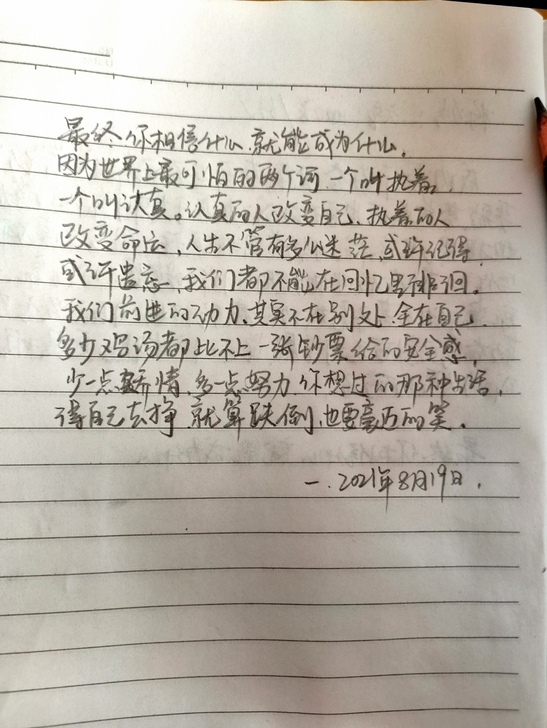 最终你相信什么,就能成为什么,
因为世界上最可怕的两个词 一个叫执着,
一个叫认真。认真的人改变自己,执着的人
改变命运,人生不管有多么迷茫,或许记得,
或许遗忘,我们都不能在回忆里徘徊。
我们前进的动力,其实不在别处,全在自己,
多少鸡汤都比不上一张钞票给的安全感,
少一点矫情,多一点努力 你想过的那种生活,
得自己去挣 就算跌倒,也要豪迈的笑。
一.2021年8月19日.